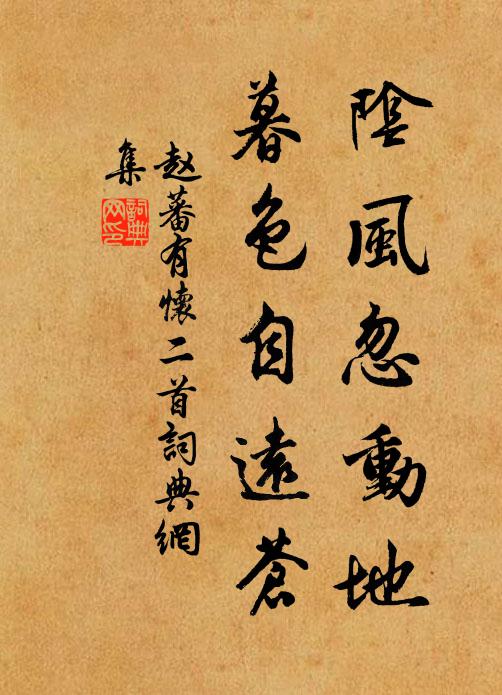 陰風忽動地
暮色自遠蒼
赵蕃有懷二首詞典網
集
詞典
网印